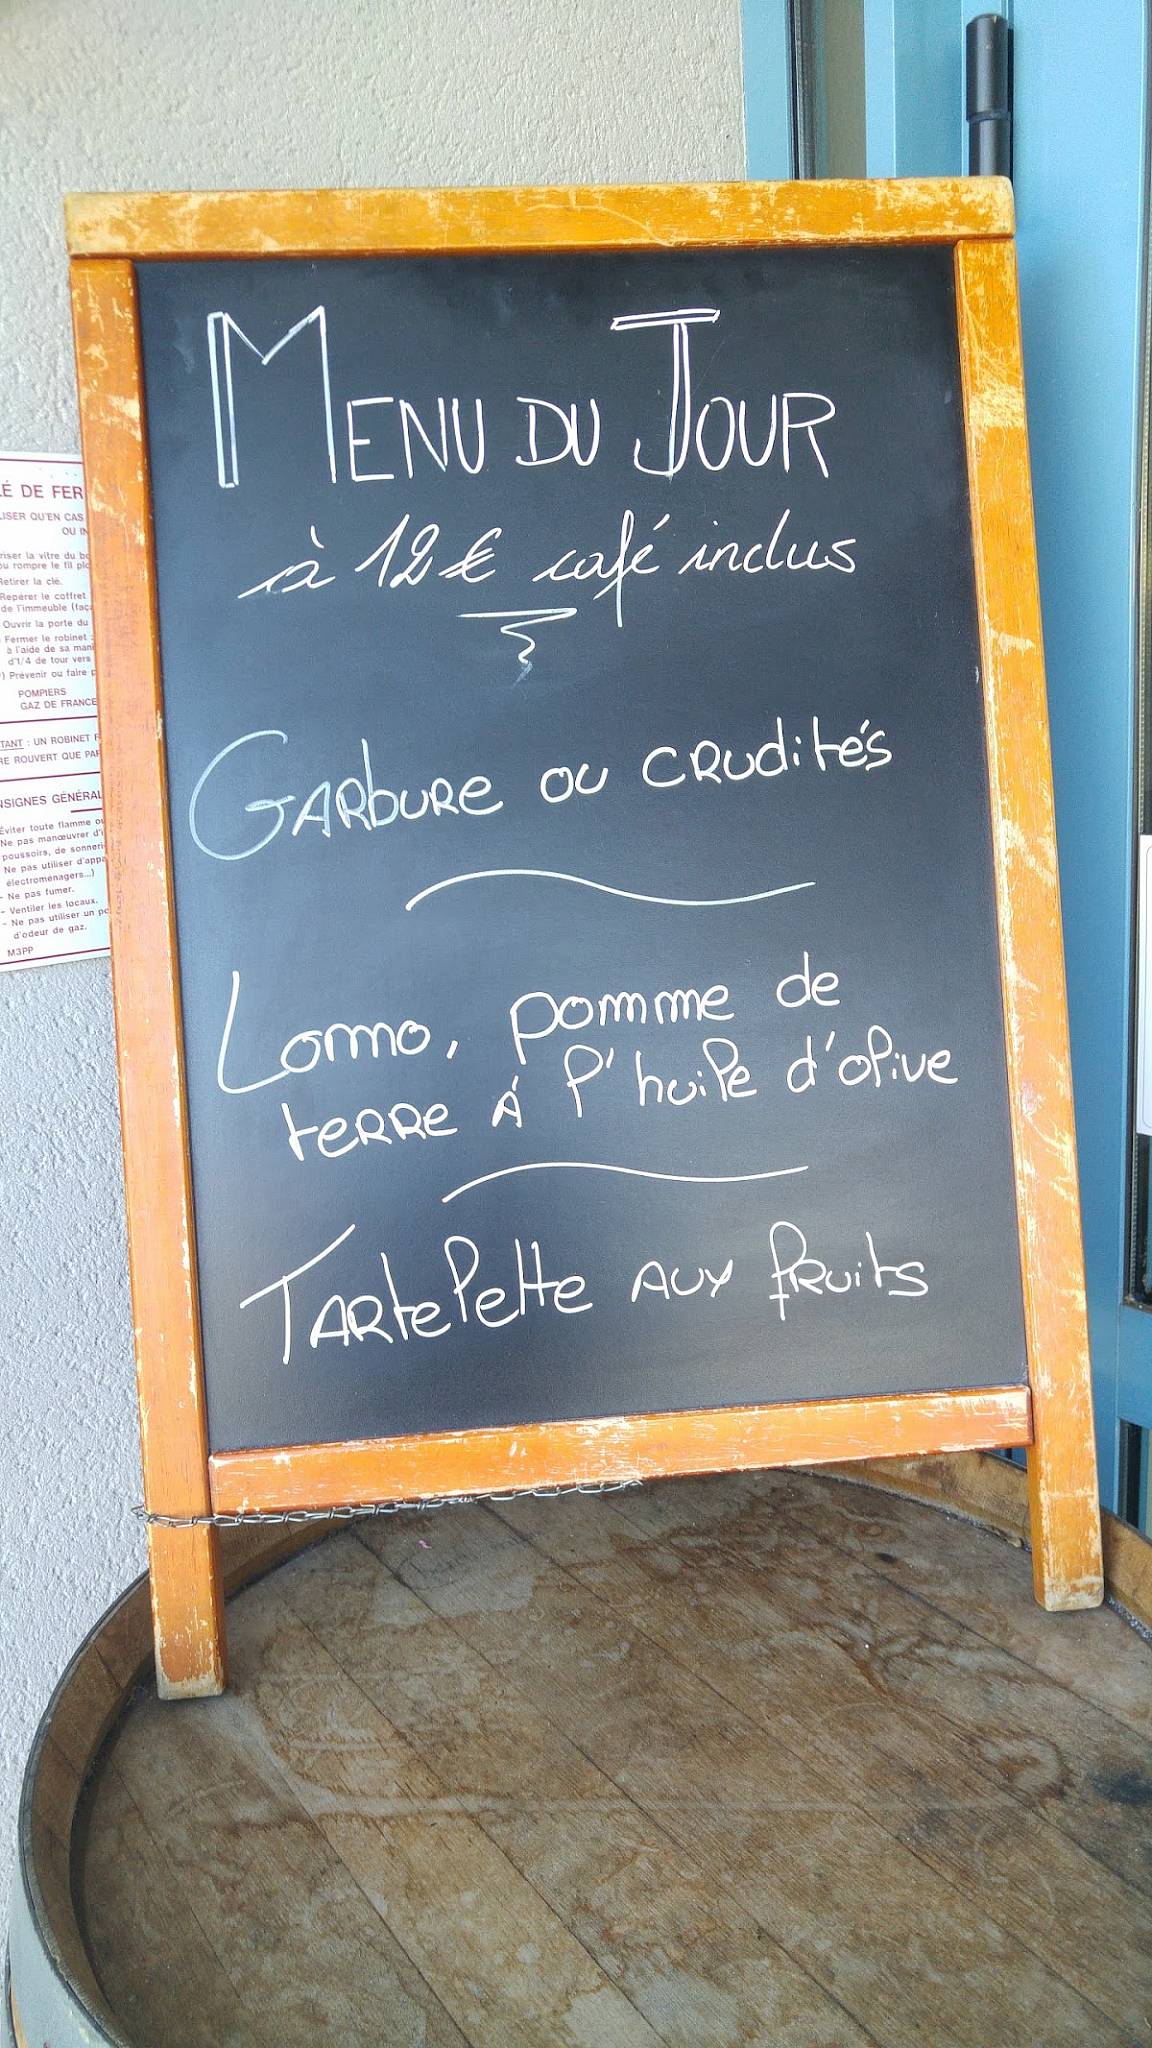 MENU DU JOUR
à 12€ café inclus
GARbURE ou CRUdités
Lomo, pomme de
teRRe À l'huile d'olive
TARtelette AUX fRuits
LÉ DE FER
LISER QU'EN CAS
OU IN
riser la vitre du bo
ou rompre le fil plo
Retirer la clé.
Repérer le coffret
de l'immeuble (faça
Ouvrir la porte du
Fermer le robinet :
à l'aide de sa mani
d'1/4 de tour vers
) Prévenir ou faire p
POMPIERS
GAZ DE FRANCE
TANT : UN ROBINET F
RE ROUVERT QUE PAR
NSIGNES GÉNÉRAL
Éviter toute flamme ou
Ne pas manœuvrer d'i
poussoirs, de sonneri
Ne pas utiliser d'appa
électroménagers...)
- Ne pas fumer.
- Ventiler les locaux.
- Ne pas utiliser un po
d'odeur de gaz.
M3PP